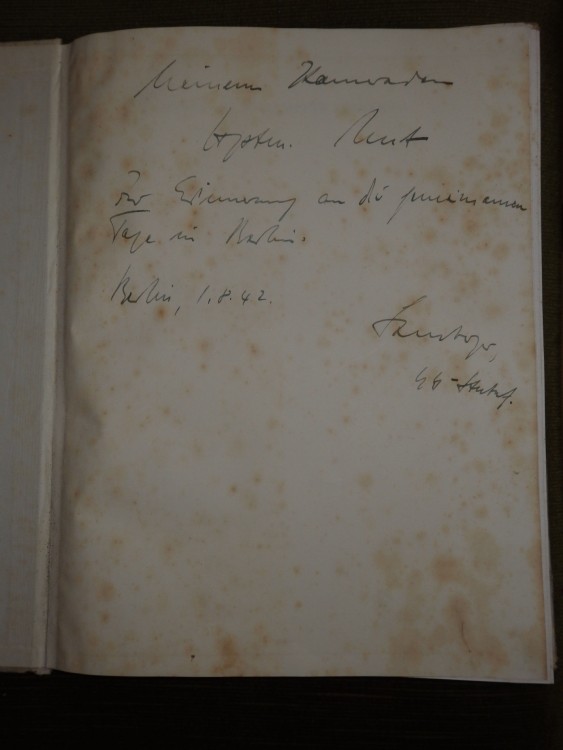 Meinem Kameraden
Hptm.
Zur Erinnerung an die gemeinsamen
Tage in Berlin.
Berlin, 1.8.42.